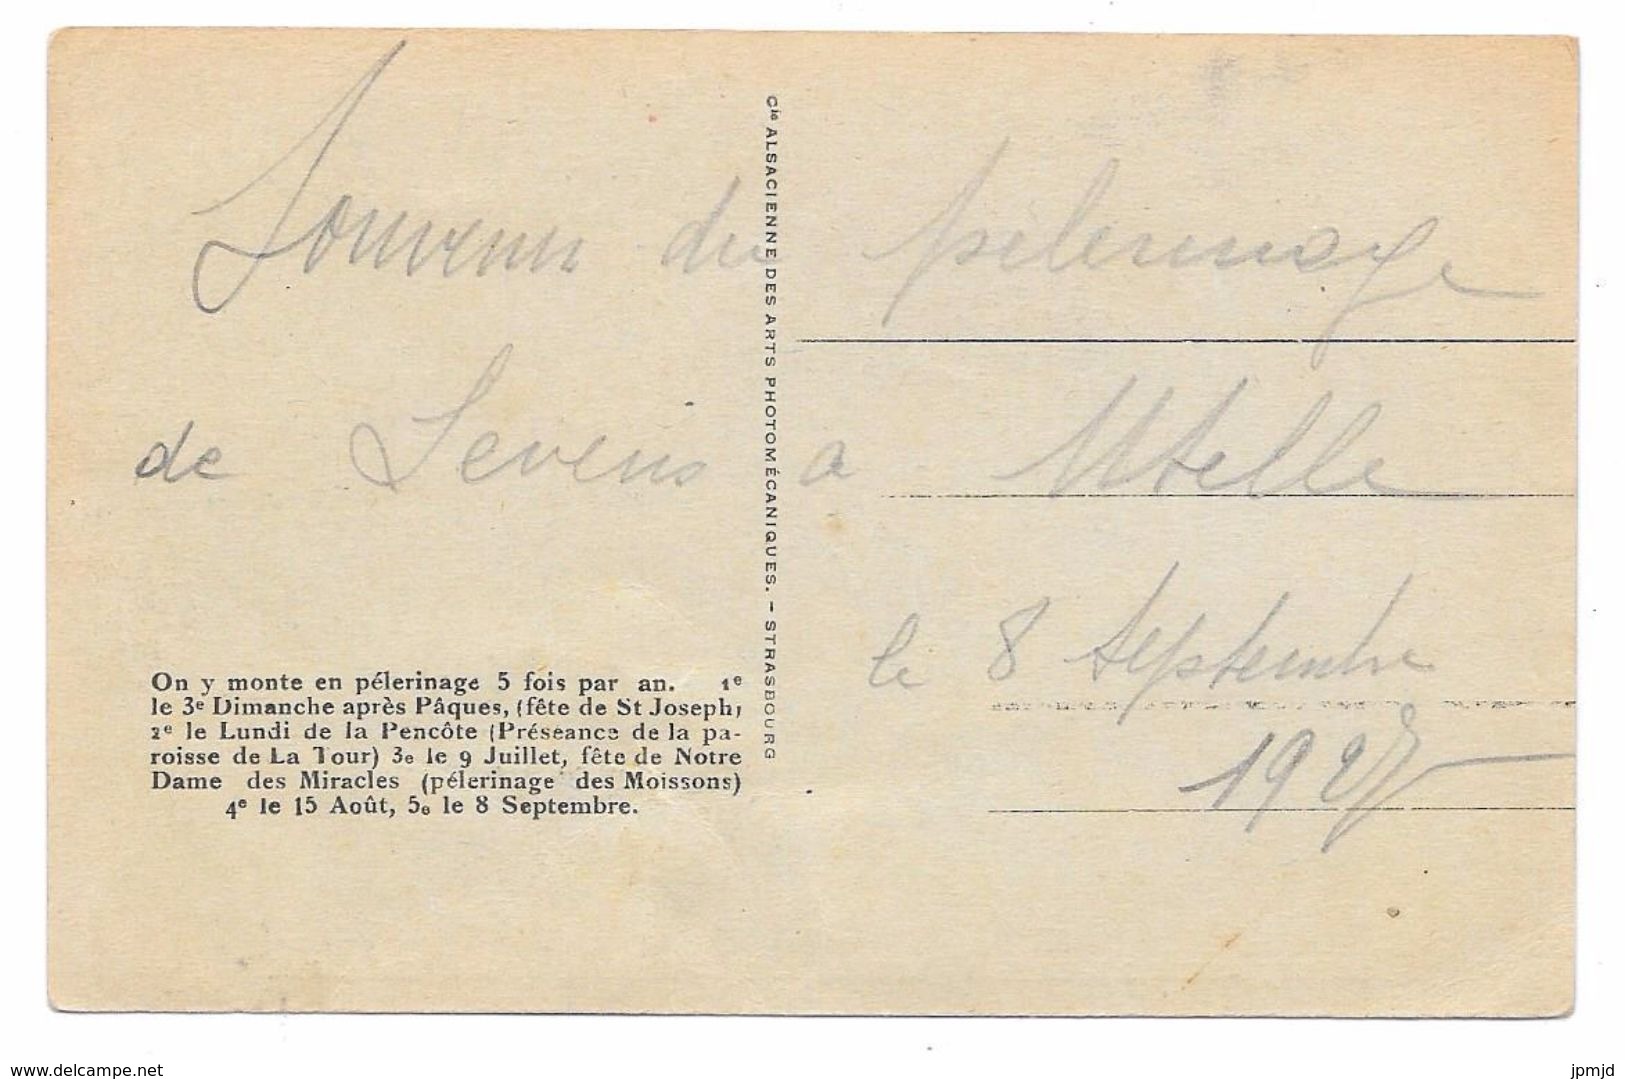 Souvenir du pélerinage
de Levens a Utelle
le 8 Septembre
Cie ALSACIENNE DES ARTS PHOTOMÉCANIQUES. - STRASBOURG
On y monte en pélerinage 5 fois par an. 1e
le 3e Dimanche après Pâques, (fête de St Joseph)
2e le Lundi de la Pencôte (Préséance de la pa-
roisse de La Tour) 3e le 9 Juillet, fête de Notre
Dame des Miracles (pélerinage des Moissons)
4e le 15 Août, 5e le 8 Septembre.
www.delcampe.net
jpmjd